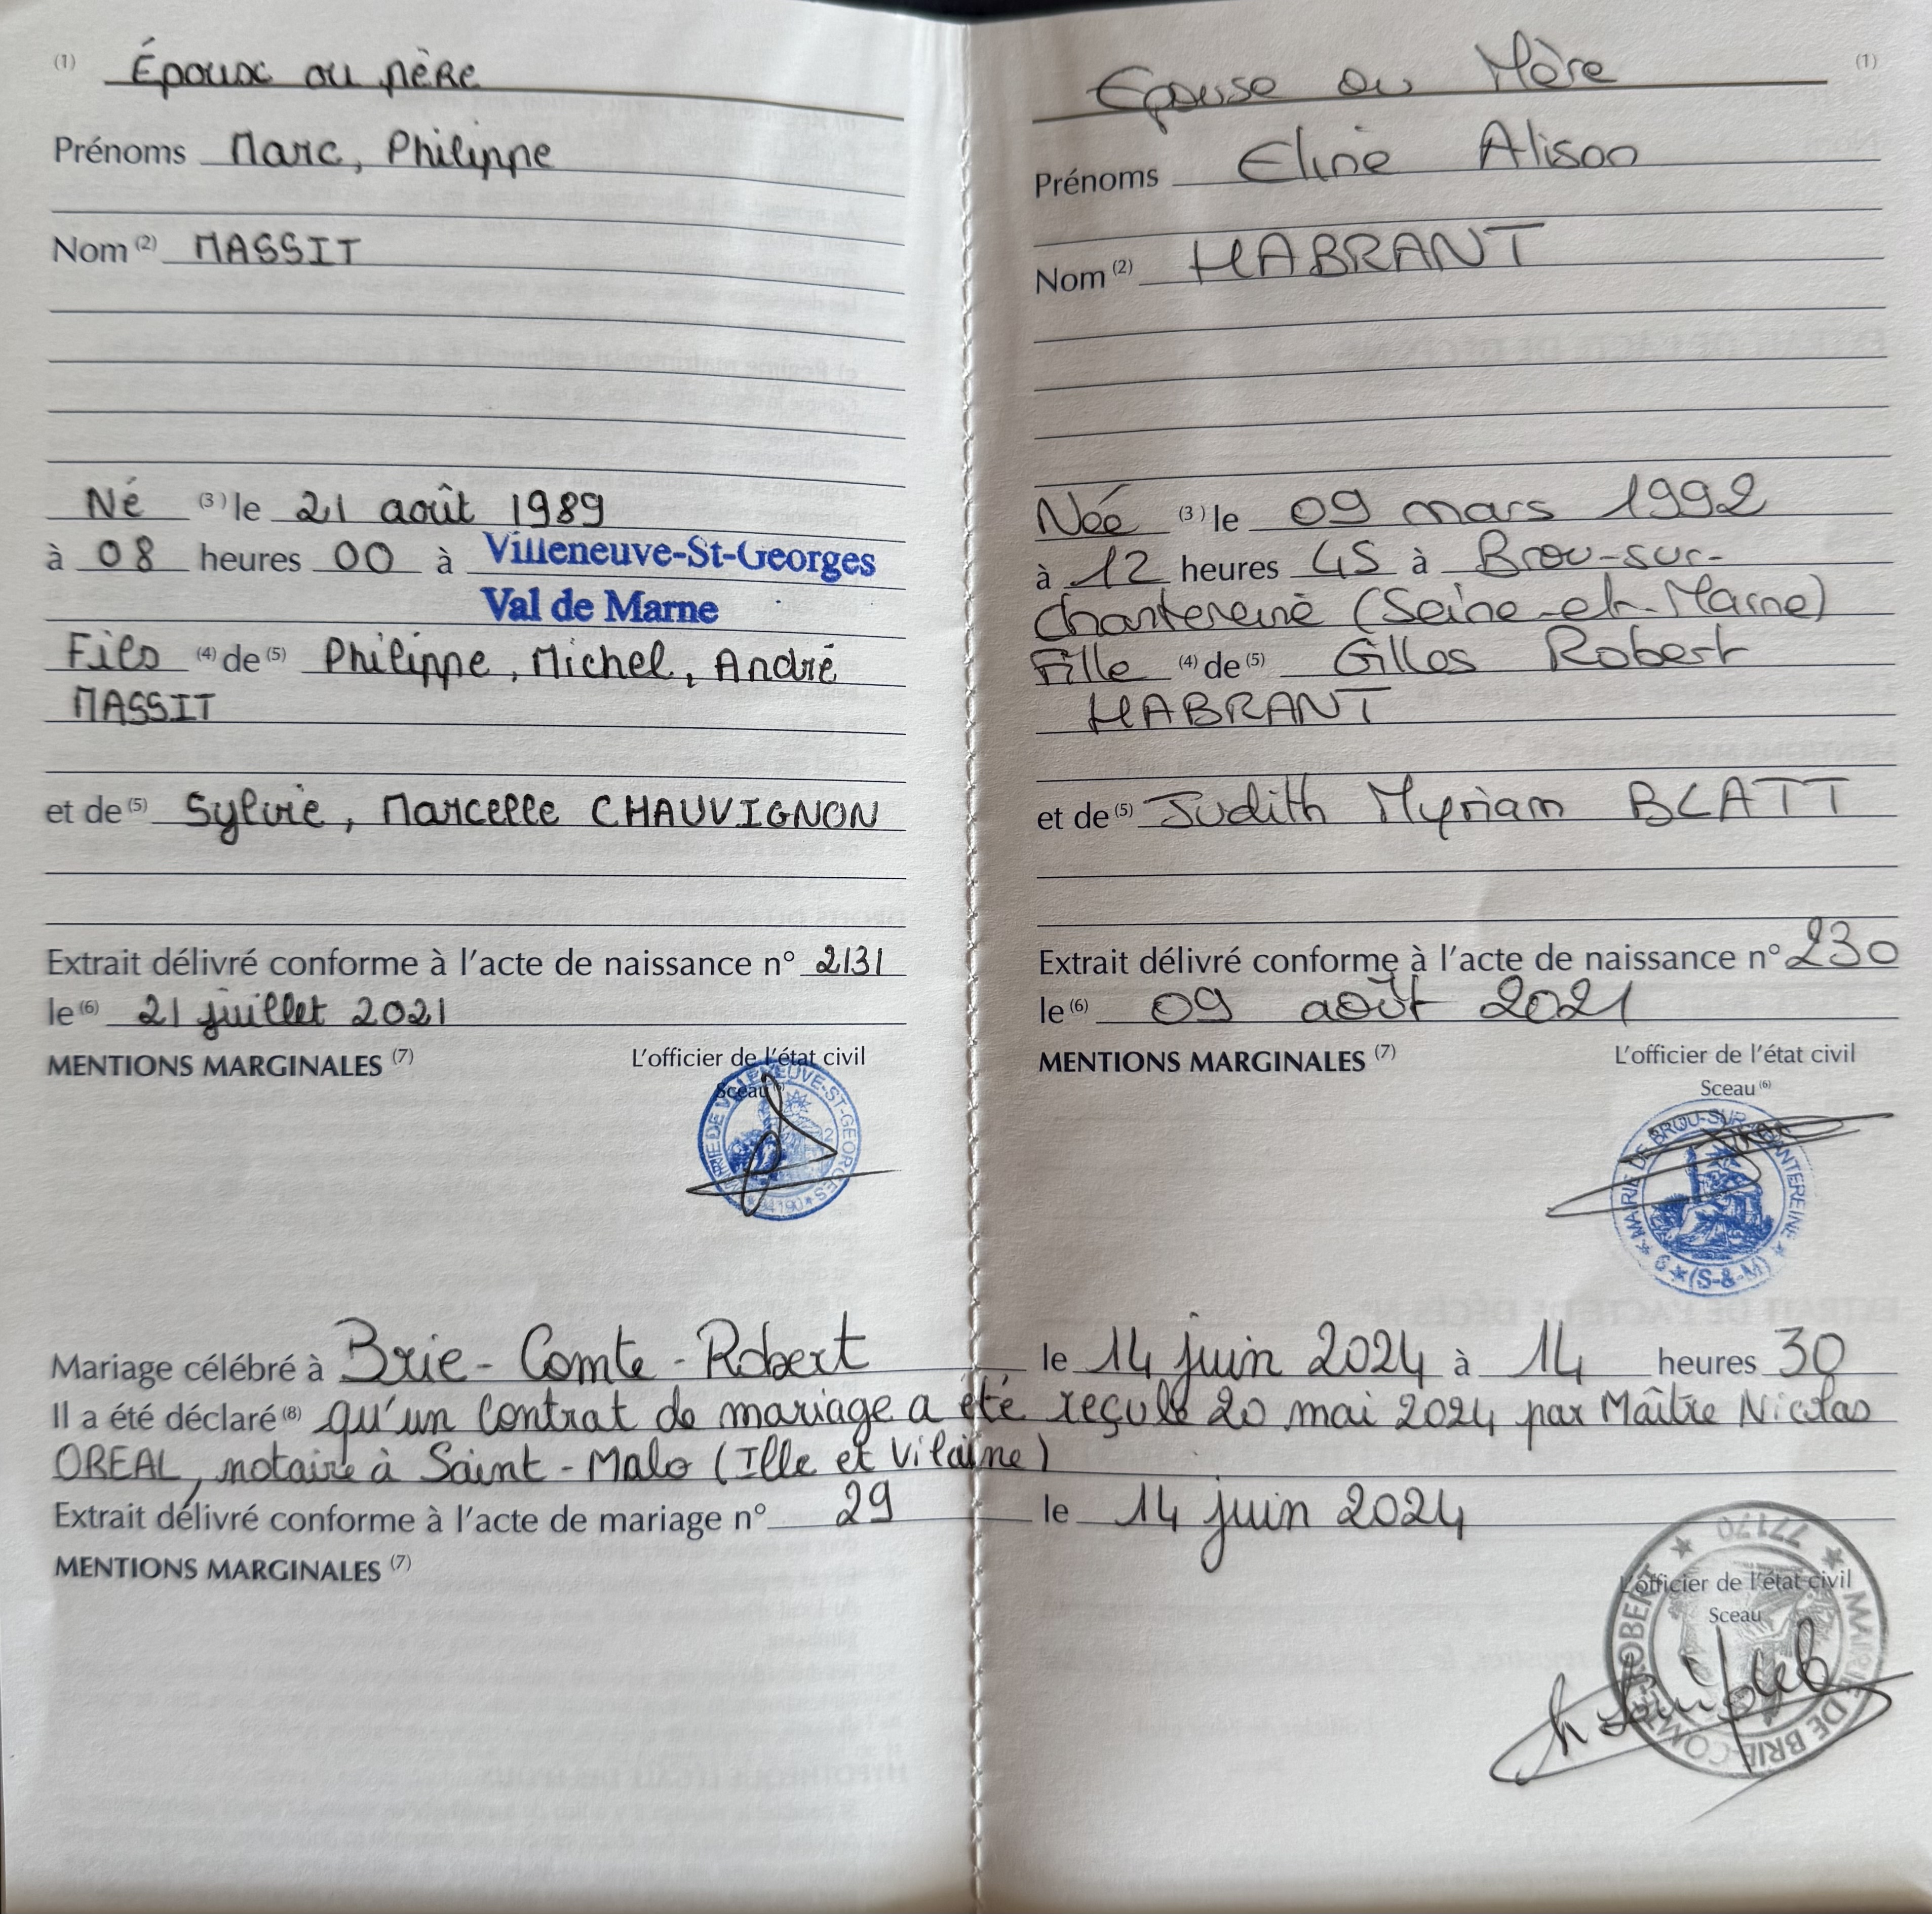 (1) Époux ou père
Prénoms Marc, Philippe
Nom (2) MASSIT
Né (3) le 21 août 1989
à 08 heures 00 à Villeneuve-St-Georges
Val de Marne
Fils (4) de (5) Philippe, Michel, André
MASSIT
et de (5) Sylvie, Marcelle CHAUVIGNON
Extrait délivré conforme à l'acte de naissance n° 2131
le (6) 21 juillet 2021
MENTIONS MARGINALES (7)
L'officier de l'état civil
Sceau (6)
MAIRIE DE VILLENEUVE-ST-GEORGES
* 94190 *
Epouse ou Mère (1)
Prénoms Eline Alison
Nom (2) HABRANT
Née (3) le 09 mars 1992
à 12 heures 45 à Brou-sur-
Chantereine (Seine-et-Marne)
Fille (4) de (5) Gilles Robert
HABRANT
et de (5) Judith Myriam BLATT
Extrait délivré conforme à l'acte de naissance n° 230
le (6) 09 août 2021
MENTIONS MARGINALES (7)
L'officier de l'état civil
Sceau (6)
* MAIRIE DE BROU-SUR-CHANTEREINE *
6 * (S-&-M)
Mariage célébré à Brie-Comte-Robert le 14 juin 2024 à 14 heures 30
Il a été déclaré (8) qu'un contrat de mariage a été reçu le 20 mai 2024 par Maître Nicolas
OREAL, notaire à Saint-Malo (Ille et Vilaine)
Extrait délivré conforme à l'acte de mariage n° 29 le 14 juin 2024
MENTIONS MARGINALES (7)
L'officier de l'état civil
Sceau
MAIRIE DE BRIE-COMTE-ROBERT
* 77170 *